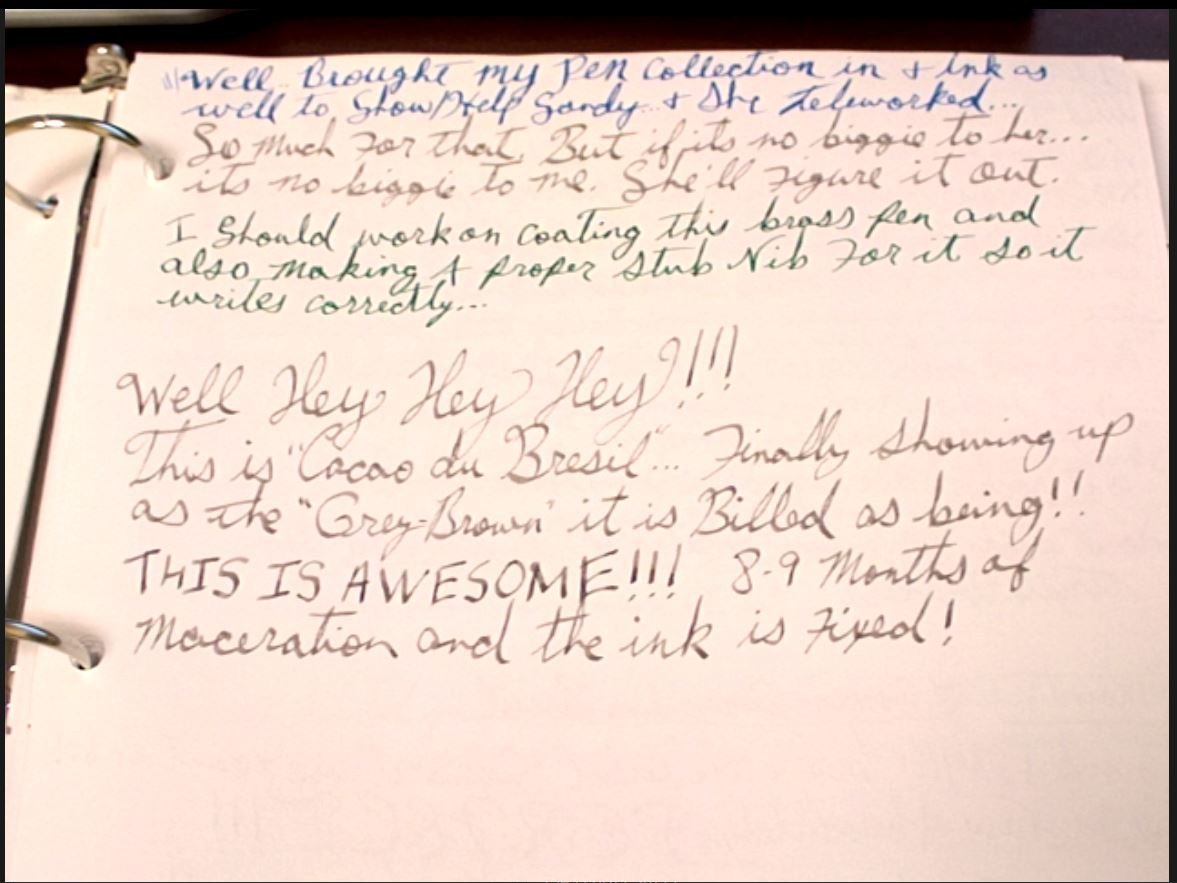 Well.. Brought my Pen Collection in + Ink as
well to Show/Help Sandy... + She teleworked...
So much For that. But if its no biggie to her...
its no biggie to me. She'll Figure it out.
I Should work on coating this brass pen and
also making A proper Stub Nib For it so it
writes correctly...
Well Hey Hey Hey!!!!
This is "Cacao du Bresil"... Finally showing up
as the "Grey-Brown" it is Billed as being!!
THIS IS AWESOME!!! 8-9 Months of
Maceration and the ink is Fixed!